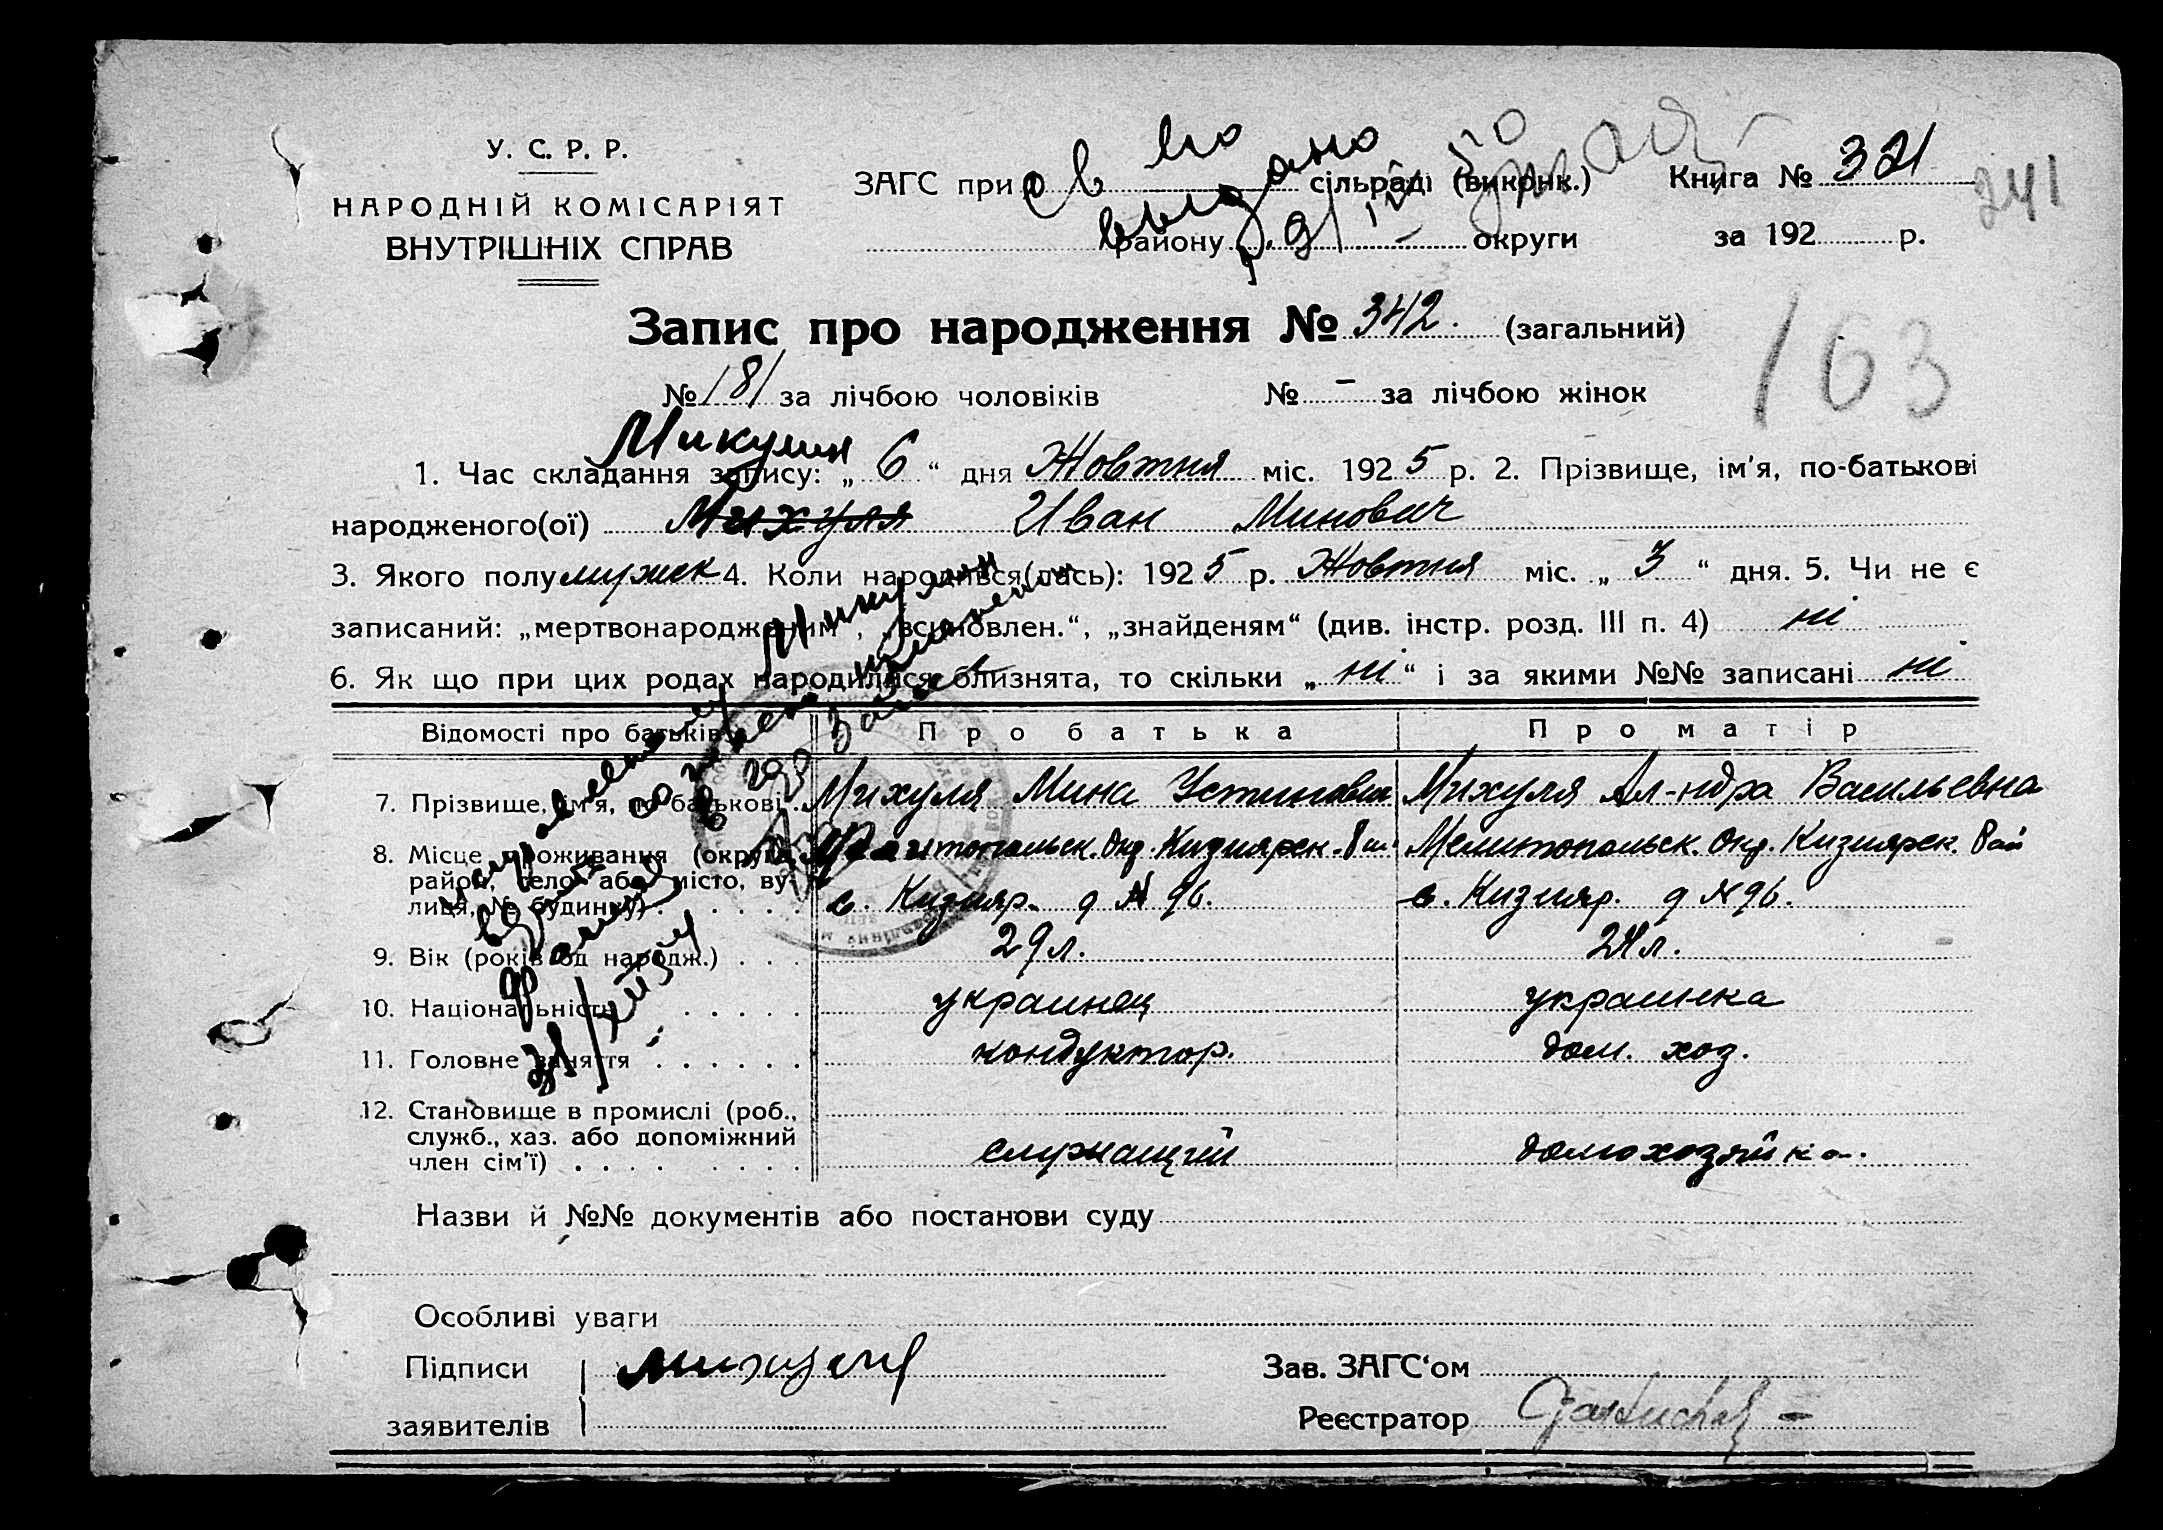 У. С. Р. Р.
НАРОДНІЙ КОМІСАРІЯТ
ВНУТРІШНІХ СПРАВ
ЗАГС при сільраді (виконк.)
Св во выдано
району округи
Книга № 321
241
за 192 р.
Запис про народження № 342. (загальний)
163
№ 181 за лічбою чоловіків № - за лічбою жінок
Микулин
1. Час складання запису: „6“ дня Жовтня міс. 1925 р. 2. Прізвище, ім'я, по-батькові
народженого(ої) Михуля Иван Минович
3. Якого полу мужск 4. Коли народився(лась): 1925 р. Жовтня міс. „3“ дня. 5. Чи не є
записаний: „мертвонародженим“, „всиновлен.“, „знайденям“ (див. інстр. розд. III п. 4) ні
6. Як що при цих родах народилися близнята, то скільки „ні“ і за якими №№ записані ні
Відомості про батьків Про батька Про матір
7. Прізвище, ім'я, по батькові Михуля Мина Устинович Михуля Ал-ндра Васильевна
8. Місце проживання (округа, район, село або місто, вулиця, № будинку) Мелитопольск. Окр. Кизиярск. Рай Мелитопольск. Окр. Кизиярск. Рай
с. Кизияр. д № 96. с. Кизияр. д № 96.
9. Вік (років од народж.) 29 л. 24 л.
10. Національність украинец украинка
11. Головне заняття кондуктор. дом. хоз.
12. Становище в промислі (роб.,
служб., хаз. або допоміжний
член сім'ї) служащий домохозяйка.
Назви й №№ документів або постанови суду
Особливі уваги
Підписи Зав. ЗАГС'ом
заявителів Реєстратор